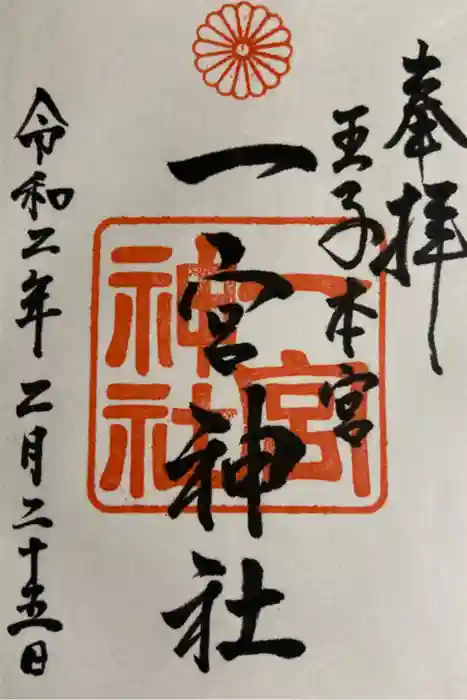 奉拝
王子本宮
一宮神社
一宮
神社
令和二年 二月二十五日